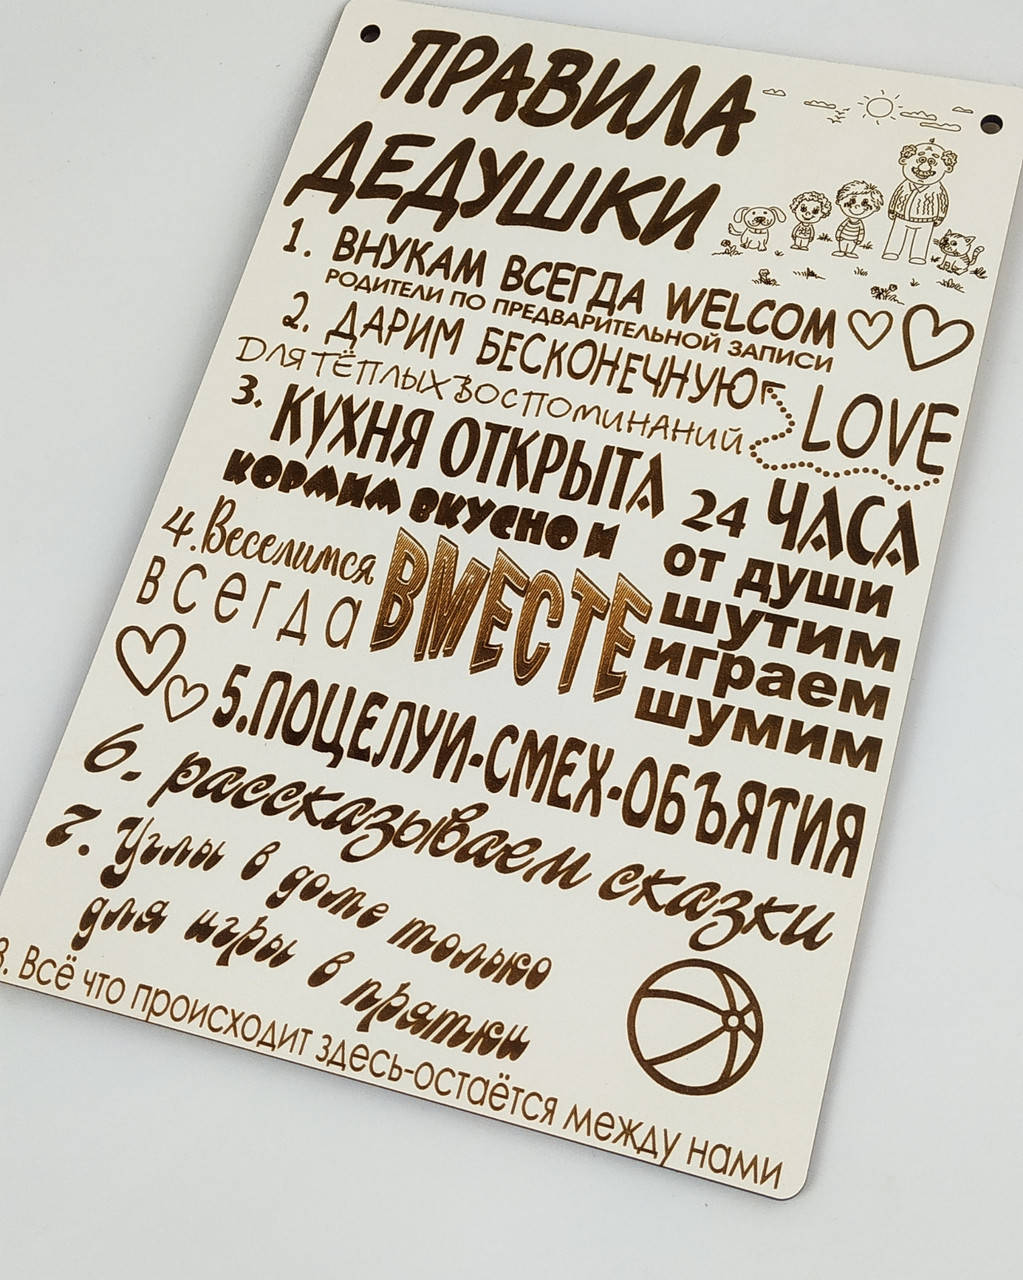 ПРАВИЛА
ДЕДУШКИ
1. ВНУКАМ ВСЕГДА WELCOM
РОДИТЕЛИ ПО ПРЕДВАРИТЕЛЬНОЙ ЗАПИСИ
2. ДАРИМ БЕСКОНЕЧНУЮ LOVE
ДЛЯ ТЁПЛЫХ ВОСПОМИНАНИЙ
3. КУХНЯ ОТКРЫТА 24 ЧАСА
КОРМИМ ВКУСНО И от души
4. Веселимся
всегда
ВМЕСТЕ
шутим
играем
шумим
5. ПОЦЕЛУИ-СМЕХ-ОБЪЯТИЯ
6. рассказываем сказки
7. Углы в доме только
для игры в прятки
8. Всё что происходит здесь-остаётся между нами